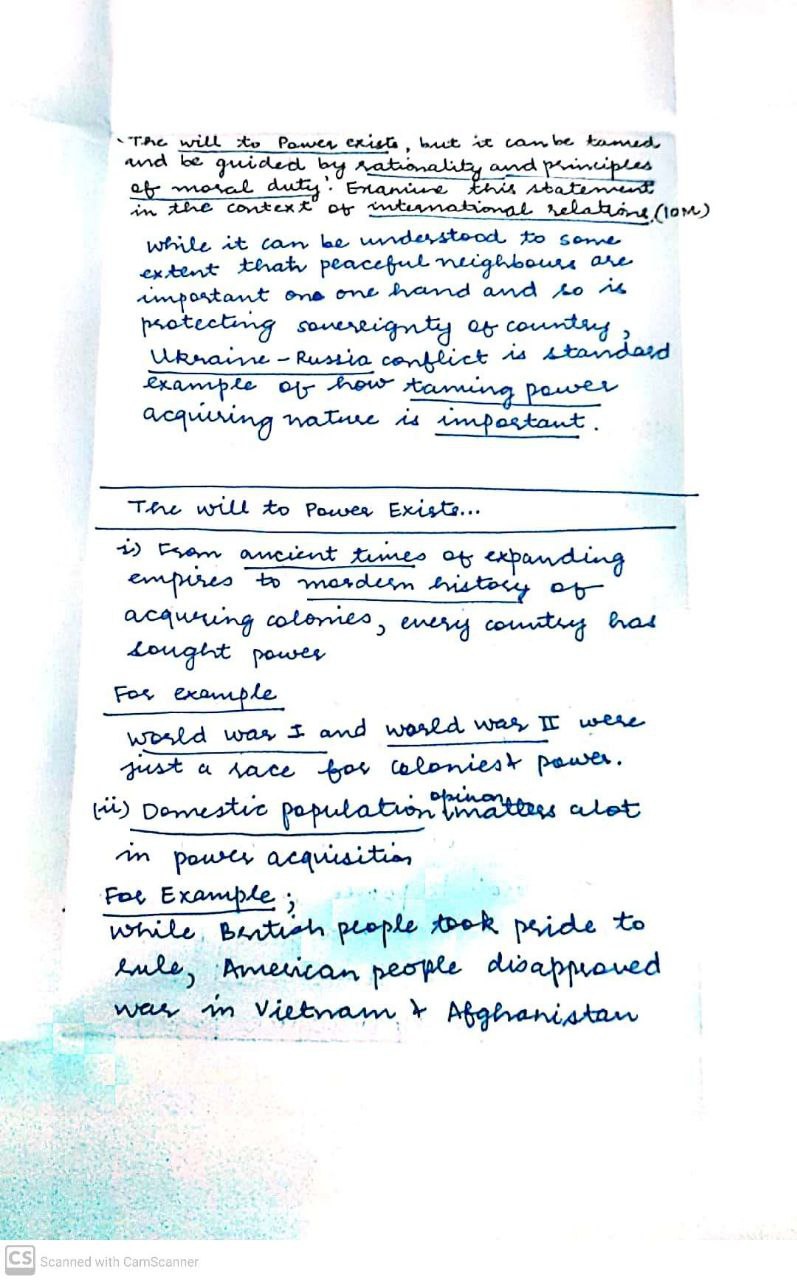 . The will to Power exists, but it can be tamed
and be guided by rationality and principles
of moral duty'. Examine this statement
in the context of international relations. (10M)
While it can be understood to some
extent thatr peaceful neighbours are
important one one hand and so is
protecting sovereignty of country,
Ukraine - Russia conflict is standard
example of how taming power
acquiring nature is important.
The will to Power Exists...
i) From ancient times of expanding
empires to mordern history of
acquring colonies, every country has
sought power
For example
World war I and world war II were
just a race for colonies & power.
(ii) Domestic population opinon matters alot
in power acquisition
For Example ;
While Bristish people took pride to
rule, American people disapproved
war in Vietnam & Afghanistan
CS Scanned with CamScanner